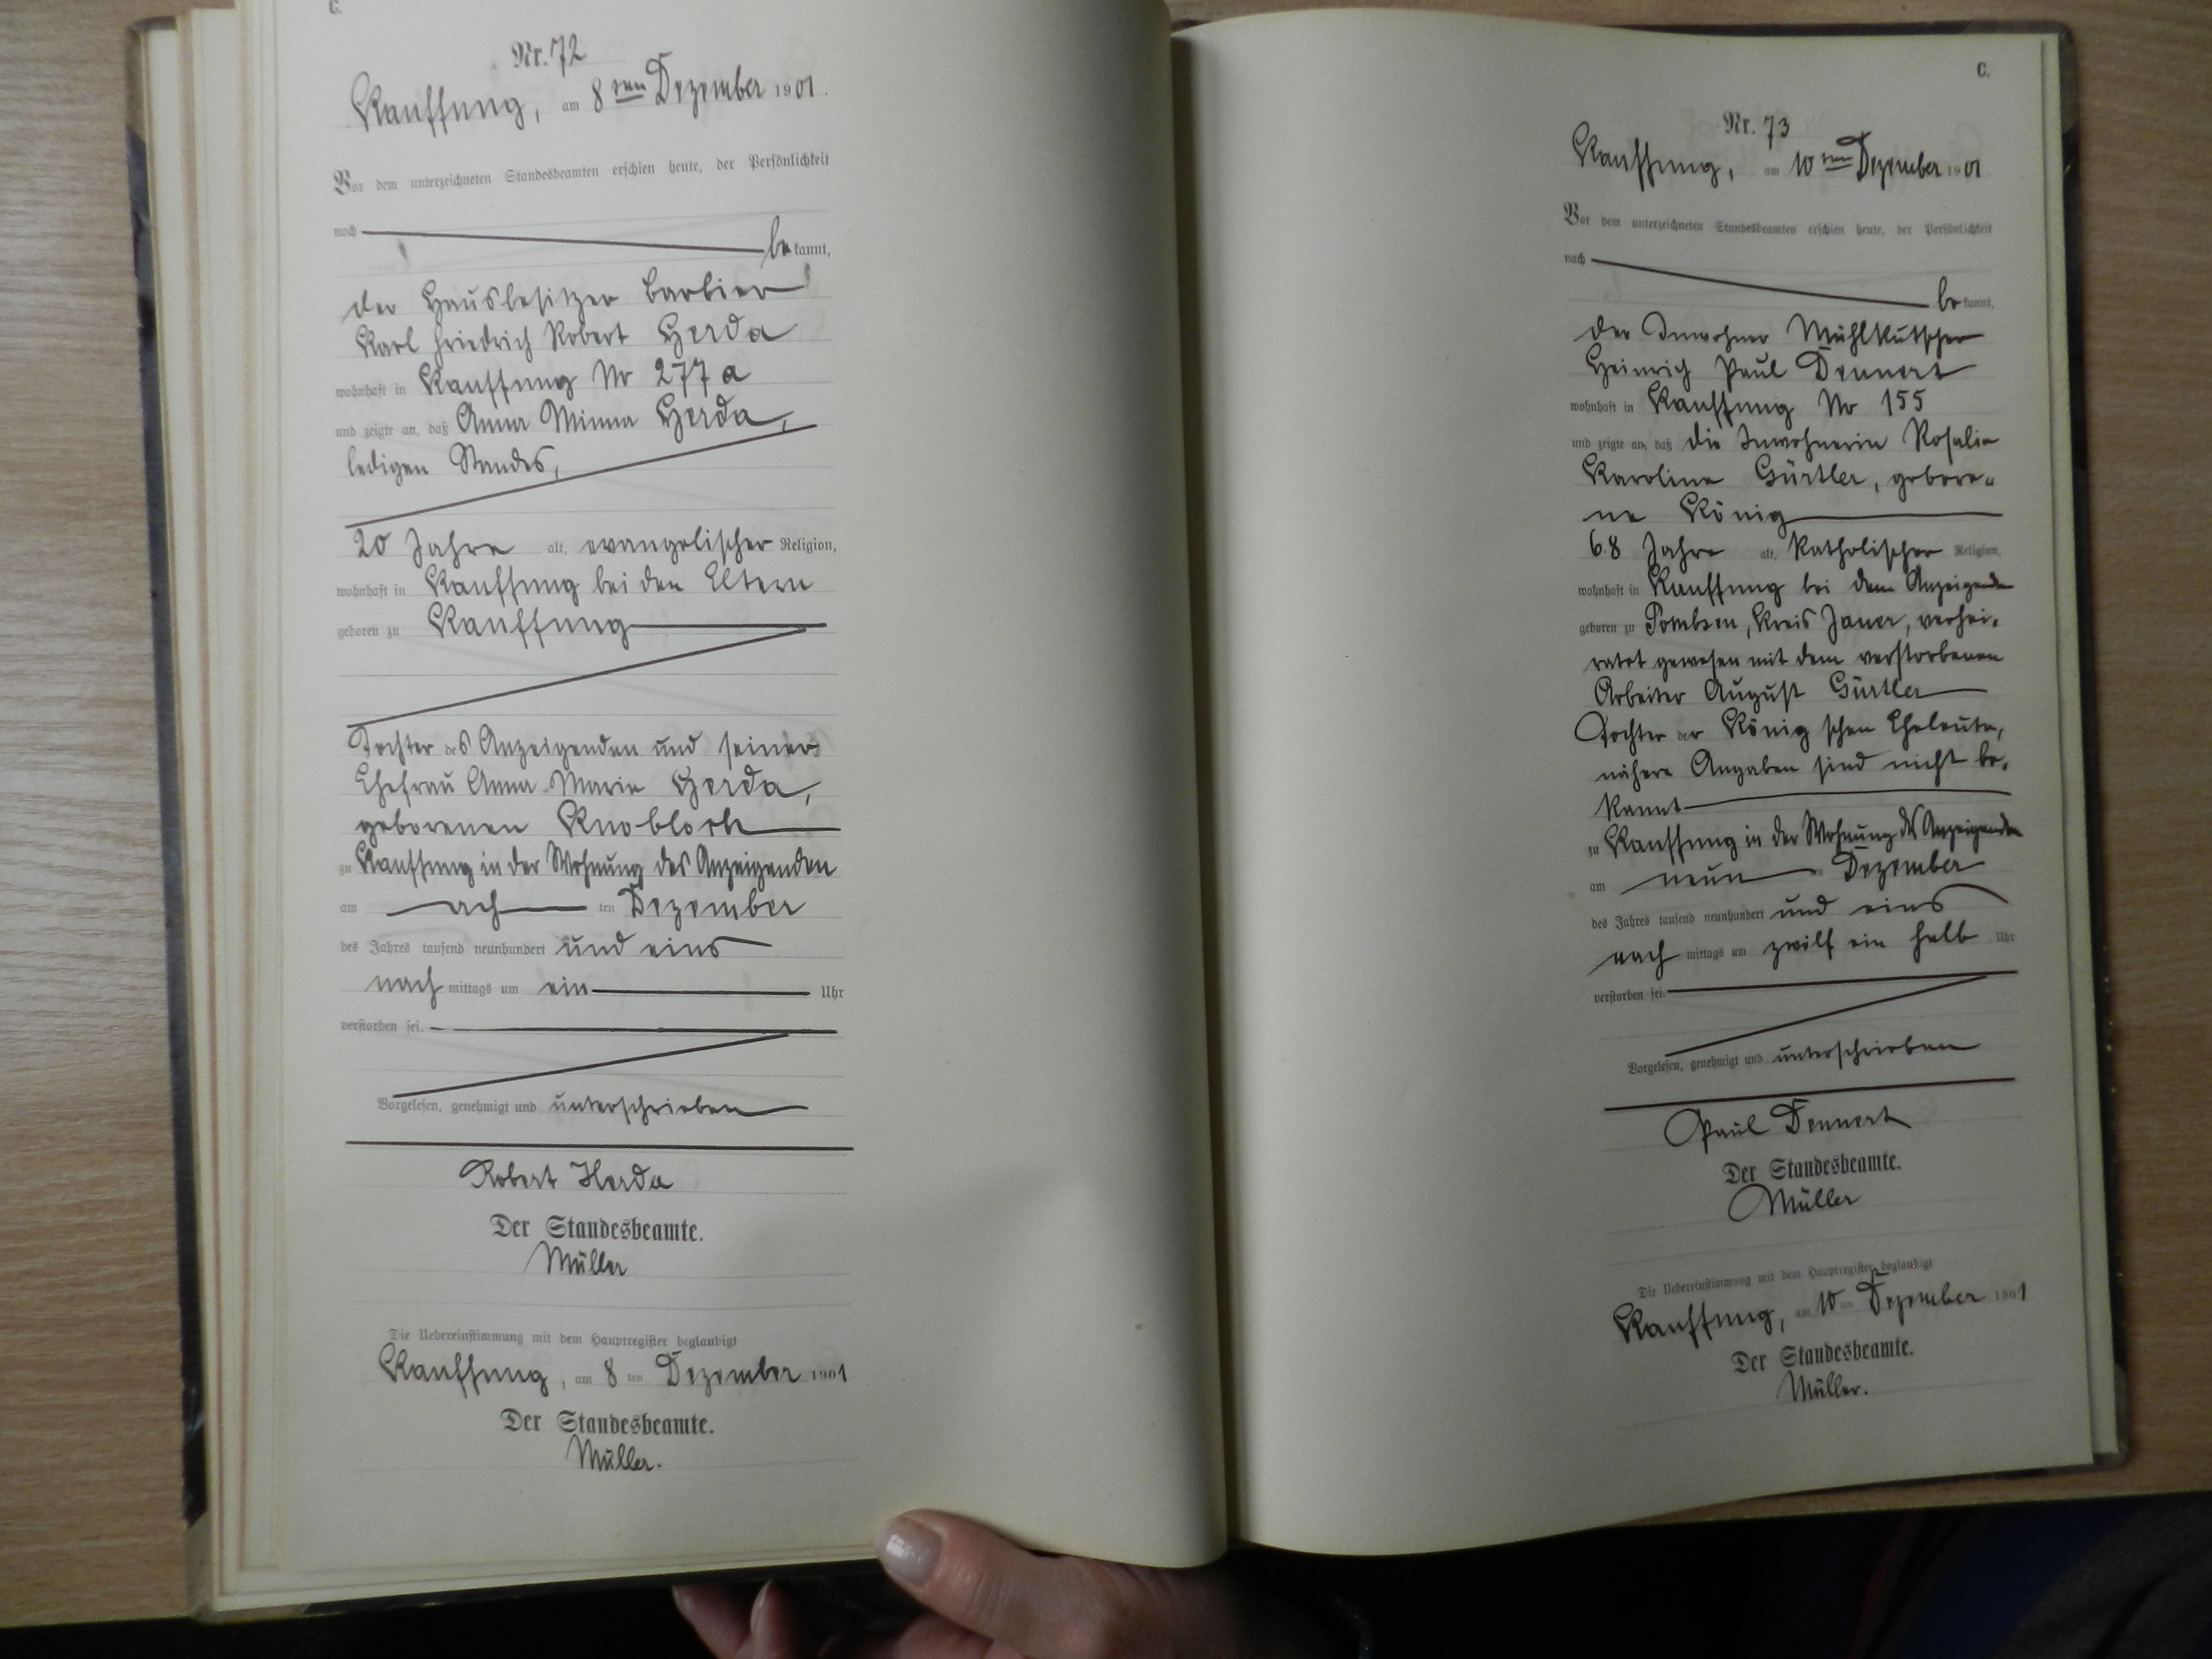 C.
Nr. 72
Kauffung, am 8ten Dezember 1901.
Vor dem unterzeichneten Standesbeamten erschien heute, der Persönlichkeit
nach
bekannt,
der Hausbesitzer Barbier
Karl Friedrich Robert Herda
wohnhaft in Kauffung No 277a
und zeigte an, daß Anna Minna Herda,
ledigen Standes,
20 Jahre alt, evangelischer Religion,
wohnhaft in Kauffung bei den Eltern
geboren zu Kauffung
Tochter des Anzeigenden und seiner
Ehefrau Anna Marie Herda,
geborenen Knobloch
zu Kauffung in der Wohnung des Anzeigenden
am ach ten Dezember
des Jahres tausend neunhundert und eins
nach mittags um ein Uhr
verstorben sei.
Vorgelesen, genehmigt und unterschrieben
Robert Herda
Der Standesbeamte.
Müller
Die Uebereinstimmung mit dem Hauptregister beglaubigt
Kauffung, am 8 ten Dezember 1901
Der Standesbeamte.
Müller.
C.
Nr. 73
Kauffung, am 10ten Dezember 1901
Vor dem unterzeichneten Standesbeamten erschien heute, der Persönlichkeit
nach
bekannt,
der Inwohner Mühlkutscher
Heinrich Paul Dennert
wohnhaft in Kauffung No 155
und zeigte an, daß die Inwohnerin Rosalie
Karoline Gürtler, gebore-
ne König
68 Jahre alt, katholischer Religion,
wohnhaft in Kauffung bei dem Anzeigenden
geboren zu Pombsen, Kreis Jauer, verhei-
ratet gewesen mit dem verstorbenen
Arbeiter August Gürtler
Tochter der König schen Eheleute,
nähere Angaben sind nicht be-
kannt
zu Kauffung in der Wohnung des Anzeigenden
am neun ten Dezember
des Jahres tausend neunhundert und eins
nach mittags um zwölf ein halb Uhr
verstorben sei.
Vorgelesen, genehmigt und unterschrieben
Paul Dennert
Der Standesbeamte.
Müller
Die Uebereinstimmung mit dem Hauptregister beglaubigt
Kauffung, am 10 ten Dezember 1901
Der Standesbeamte.
Müller.